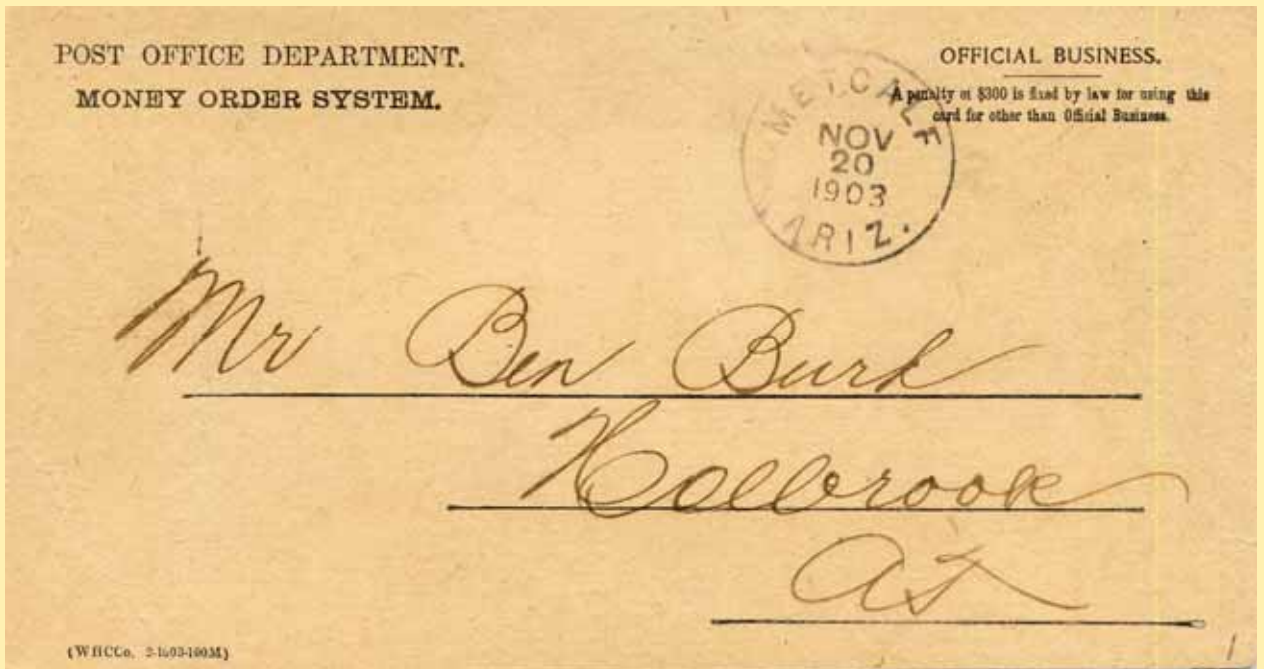 POST OFFICE DEPARTMENT.
MONEY ORDER SYSTEM.
OFFICIAL BUSINESS.
A penalty of $300 is fixed by law for using this
card for other than Official Business.
METCALF
NOV
20
1903
ARIZ.
Mr Ben Burk
Holbrook
AT
(WHCCo. 2-1903-100M)
1